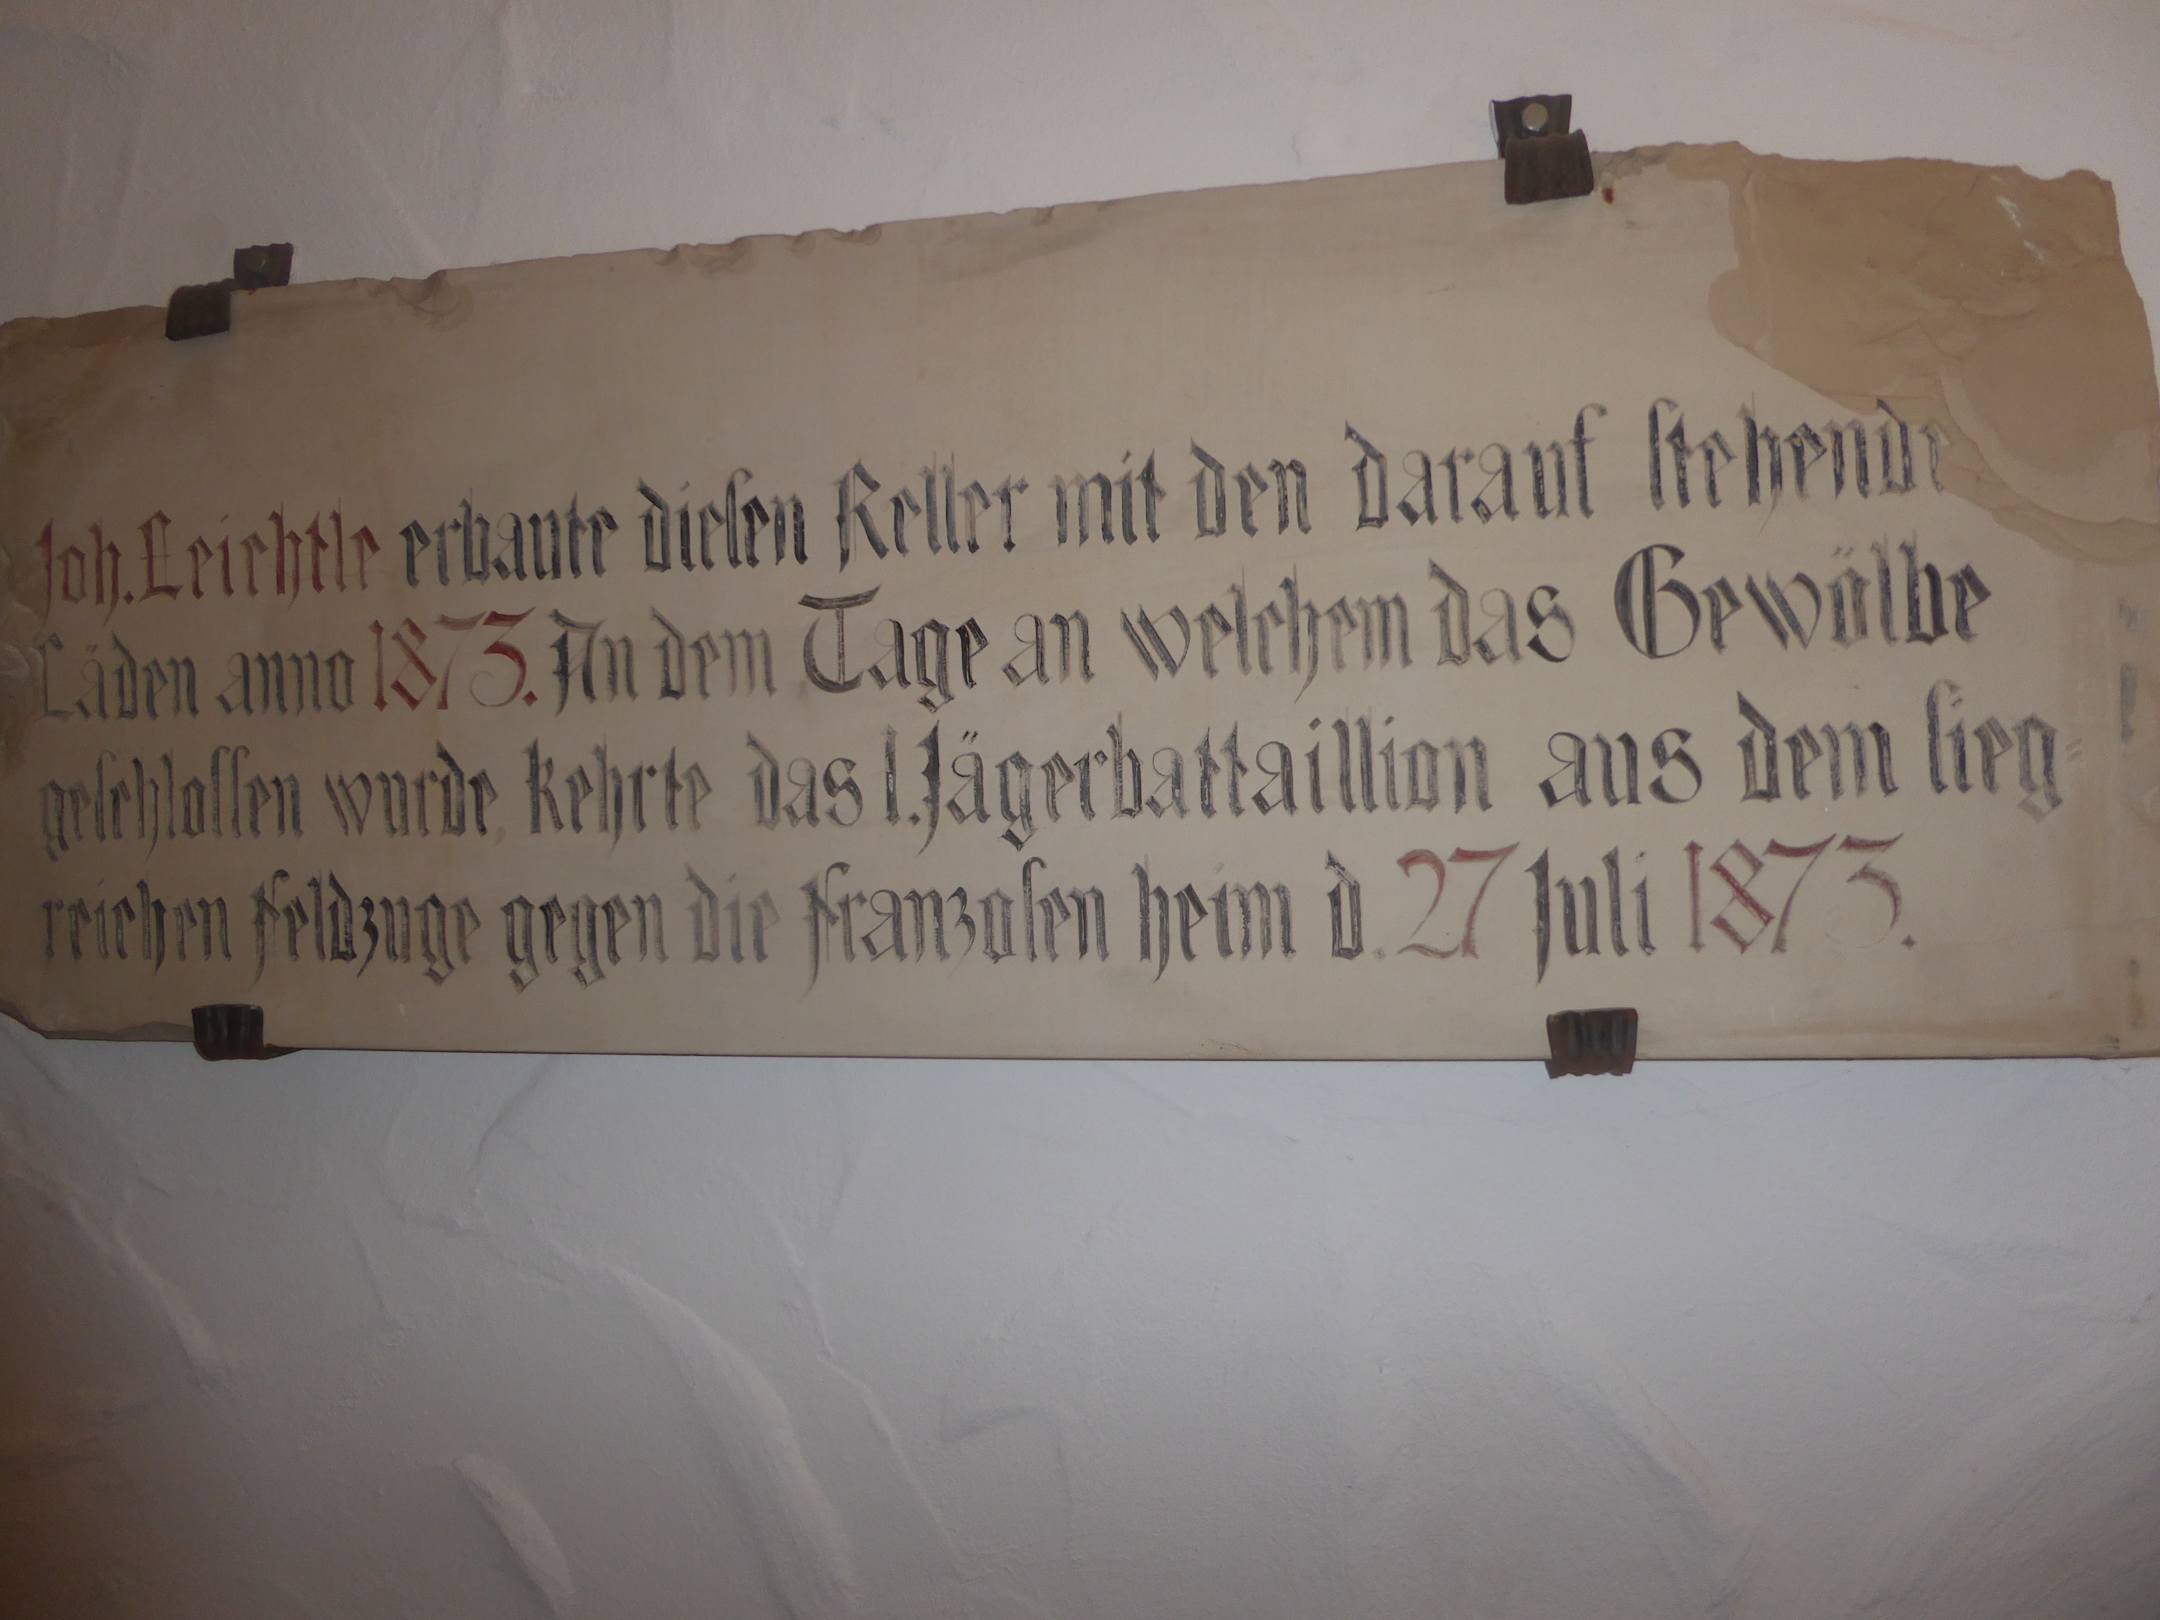 Joh. Leichtle erbaute dieſen Keller mit den darauf ſtehende
Läden anno 1873. An dem Tage an welchem das Gewölbe
geſchloſſen wurde, kehrte das 1. Jägerbattaillion aus dem ſieg=
reichen Feldzuge gegen die Franzoſen heim d. 27 Juli 1873.